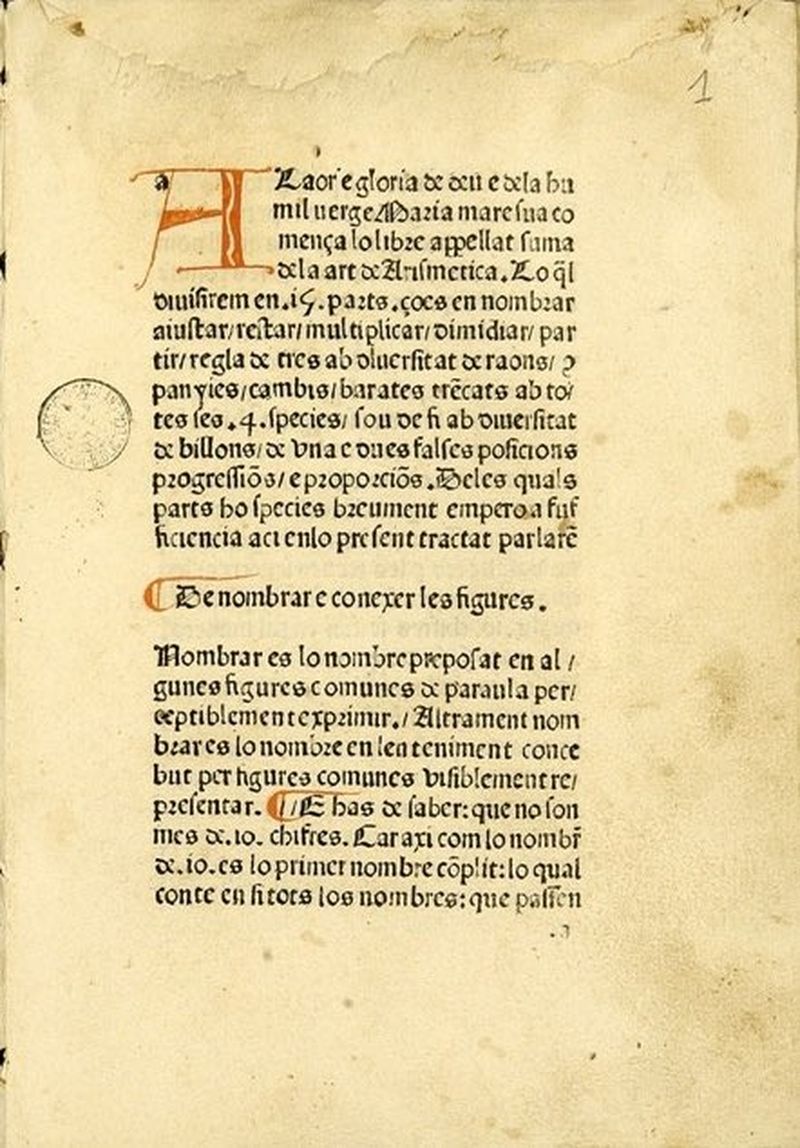 1
A Laor e gloria de deu e dela hu
mil uerge Maria mare sua co
mença lo libre appellat suma
dela art de Arismetica. Lo q̄l
diuisirem en .15. parts .ços en nombrar
aiustar/restar/multiplicar/dimidiar/par
tir/regla de tres ab diuersitat de raons/ ↄ
panyies/cambis/barates trēcats ab to/
tes ses .4. species/ sou de fi ab diuersitat
de billons/de vna e dues falses posicions
progressiōs/e proporciōs. Deles quals
parts ho species breument empero a suf
ficiencia aci enlo present tractat parlarē
¶ De nombrar e conexer les figures.
Nombrar es lo nombre preposat en al/
gunes figures comunes de paraula per/
ceptiblement exprimir./ Altrament nom
brar es lo nombre en len teniment conce
but per figures comunes visiblement re/
presentar. ¶/E has de saber: que no son
mes de .10. chifres. Car axi com lo nombr̄
de .10. es lo primer nombre cōplit: lo qual
conte en si tots los nombres: que passen